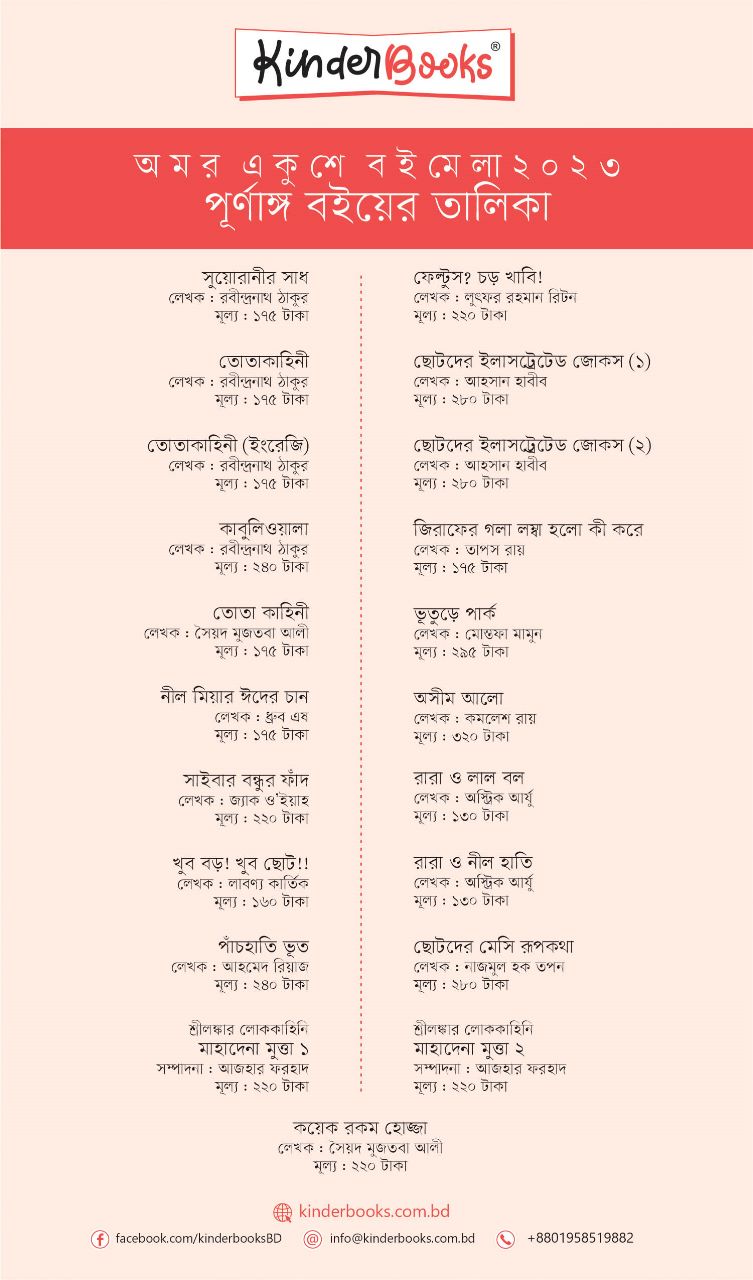 KinderBooks®
অমর একুশে বইমেলা ২০২৩
পূর্ণাঙ্গ বইয়ের তালিকা
সুয়োরানীর সাধ
লেখক : রবীন্দ্রনাথ ঠাকুর
মূল্য : ১৭৫ টাকা
তোতাকাহিনী
লেখক : রবীন্দ্রনাথ ঠাকুর
মূল্য : ১৭৫ টাকা
তোতাকাহিনী (ইংরেজি)
লেখক : রবীন্দ্রনাথ ঠাকুর
মূল্য : ১৭৫ টাকা
কাবুলিওয়ালা
লেখক : রবীন্দ্রনাথ ঠাকুর
মূল্য : ২৪০ টাকা
তোতা কাহিনী
লেখক : সৈয়দ মুজতবা আলী
মূল্য : ১৭৫ টাকা
নীল মিয়ার ঈদের চান
লেখক : ধ্রুব এষ
মূল্য : ১৭৫ টাকা
সাইবার বন্ধুর ফাঁদ
লেখক : জ্যাক ও'ইয়াহ
মূল্য : ২২০ টাকা
খুব বড়! খুব ছোট!!
লেখক : লাবণ্য কার্তিক
মূল্য : ১৬০ টাকা
পাঁচহাতি ভূত
লেখক : আহমেদ রিয়াজ
মূল্য : ২৪০ টাকা
শ্রীলঙ্কার লোককাহিনি
মাহাদেনা মুত্তা ১
সম্পাদনা : আজহার ফরহাদ
মূল্য : ২২০ টাকা
ফেল্টুস? চড় খাবি!
লেখক : লুৎফর রহমান রিটন
মূল্য : ২২০ টাকা
ছোটদের ইলাসট্রেটেড জোকস (১)
লেখক : আহসান হাবীব
মূল্য : ২৮০ টাকা
ছোটদের ইলাসট্রেটেড জোকস (২)
লেখক : আহসান হাবীব
মূল্য : ২৮০ টাকা
জিরাফের গলা লম্বা হলো কী করে
লেখক : তাপস রায়
মূল্য : ১৭৫ টাকা
ভূতুড়ে পার্ক
লেখক : মোস্তফা মামুন
মূল্য : ২৯৫ টাকা
অসীম আলো
লেখক : কমলেশ রায়
মূল্য : ৩২০ টাকা
রারা ও লাল বল
লেখক : অস্ট্রিক আর্যু
মূল্য : ১৩০ টাকা
রারা ও নীল হাতি
লেখক : অস্ট্রিক আর্যু
মূল্য : ১৩০ টাকা
ছোটদের মেসি রূপকথা
লেখক : নাজমুল হক তপন
মূল্য : ২৮০ টাকা
শ্রীলঙ্কার লোককাহিনি
মাহাদেনা মুত্তা ২
সম্পাদনা : আজহার ফরহাদ
মূল্য : ২২০ টাকা
কয়েক রকম হোজ্জা
লেখক : সৈয়দ মুজতবা আলী
মূল্য : ২২০ টাকা
kinderbooks.com.bd
facebook.com/kinderbooksBD info@kinderbooks.com.bd +8801958519882